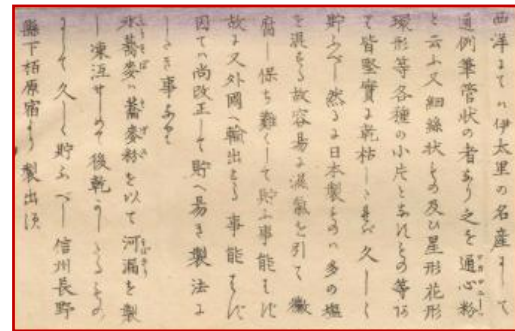 西洋にてハ伊太里の名産にして
通例筆管状の者あり之を通心粉
マカロニー
と云ふ又細絲状もの及び星形花形
環形等各種の小片となれもの等ありて
て皆堅實に乾枯しゝ者バ久しく
貯ふべし然るに日本製ものハ多の塩
を混ずる故容易に濕氣を引て黴
腐し保ち難くして貯ふ事能はず
故に又外國へ輸出する事能はず
因てハ尚改正して貯へ易き製法に
しき事にて
氷蕎麥ハ蕎麥粉を以て河漏を製
こほりそば そばこ そばきり
し凍沍せしめて後乾かしたるもの
にして久しく貯ふべし信州長野
縣下柏原宿より製出須